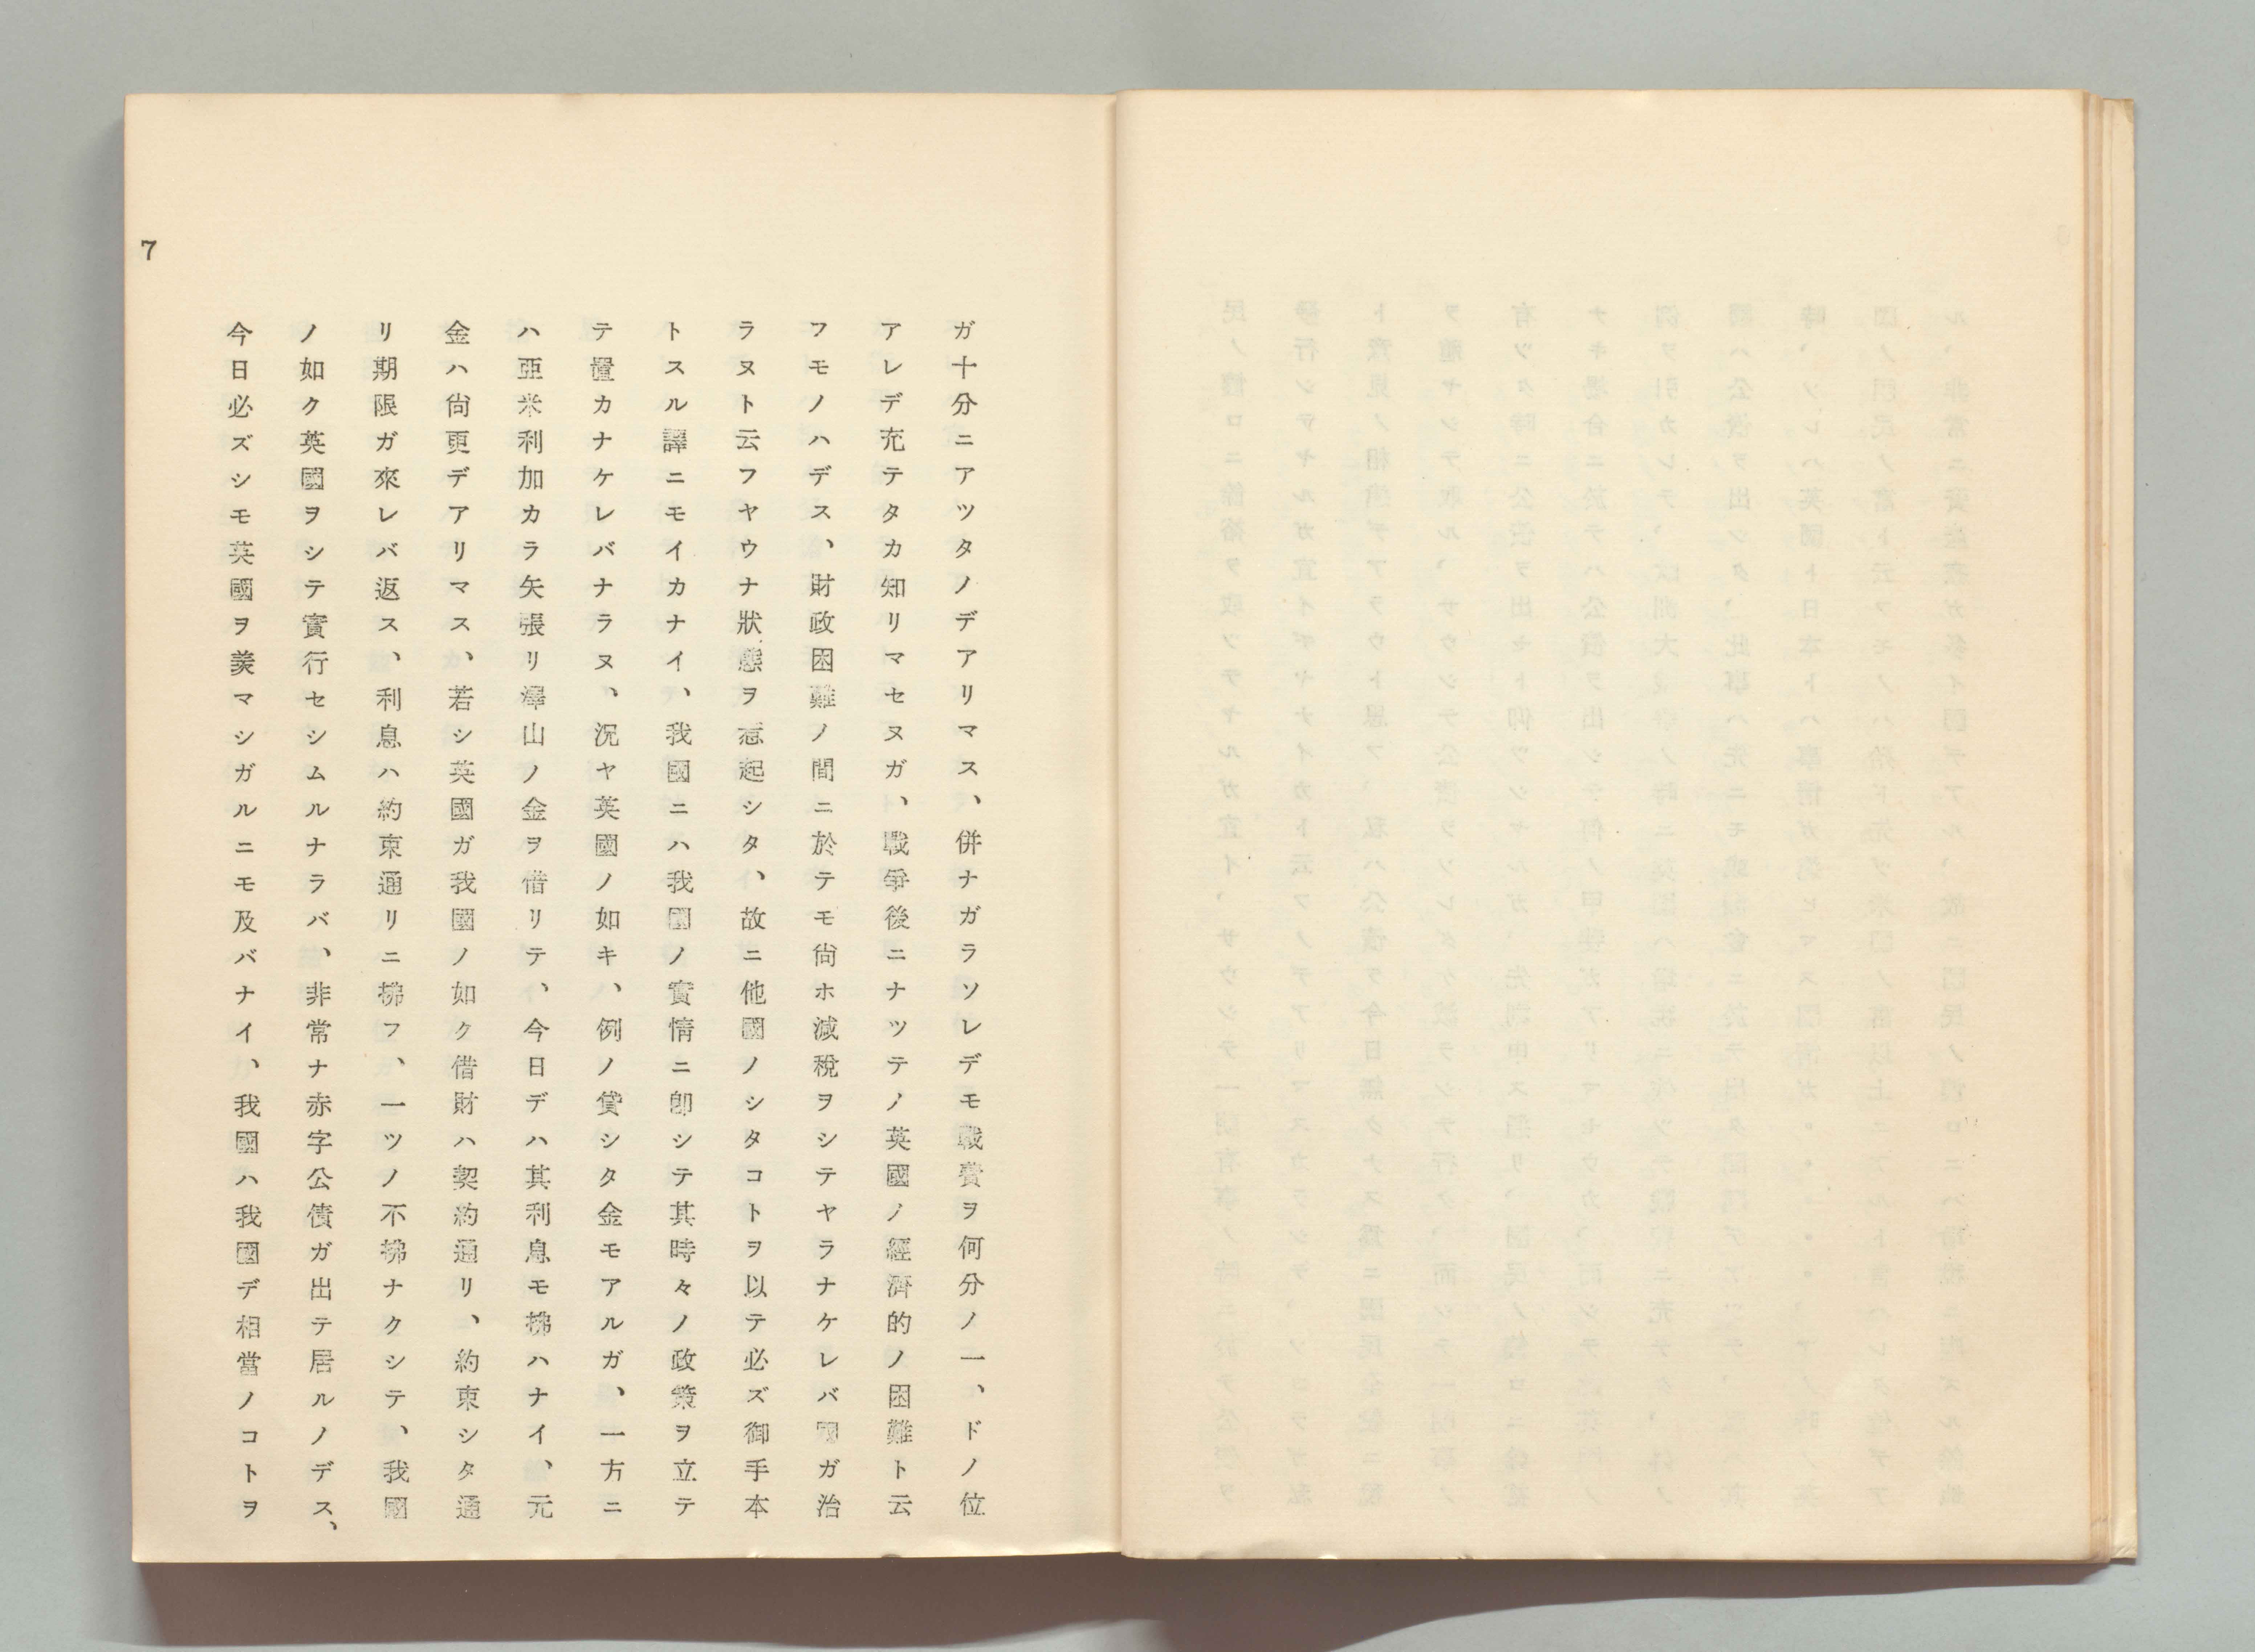 ガ十分ニアツタノデアリマス、併ナガラソレデモ戰費ヲ何分ノ一、ドノ位
アレデ充テタカ知リマセヌガ、戰爭後ニナツテノ英國ノ經濟的ノ困難ト云
フモノハデス、財政困難ノ間ニ於テモ尙ホ減稅ヲシテヤラナケレバ國ガ治
ラヌト云フヤウナ狀態ヲ惹起シタ、故ニ他國ノシタコトヲ以テ必ズ御手本
トスル譯ニモイカナイ、我國ニハ我國ノ實情ニ卽シテ其時々ノ政策ヲ立テ
テ置カナケレバナラヌ、況ヤ英國ノ如キ、例ノ貸シタ金モアルガ、一方ニ
ハ亞米利加カラ矢張リ澤山ノ金ヲ借リテ、今日デハ其利息モ拂ハナイ、元
金ハ尙更デアリマス、若シ英國ガ我國ノ如ク借財ハ契約通リ、約束シタ通
リ期限ガ來レバ返ス、利息ハ約束通リニ拂フ、一ツノ不拂ナクシテ、我國
ノ如ク英國ヲシテ實行セシムルナラバ、非常ナ赤字公債ガ出テ居ルノデス、
今日必ズシモ英國ヲ羨マシガルニモ及バナイ、我國ハ我國デ相當ノコトヲ
7